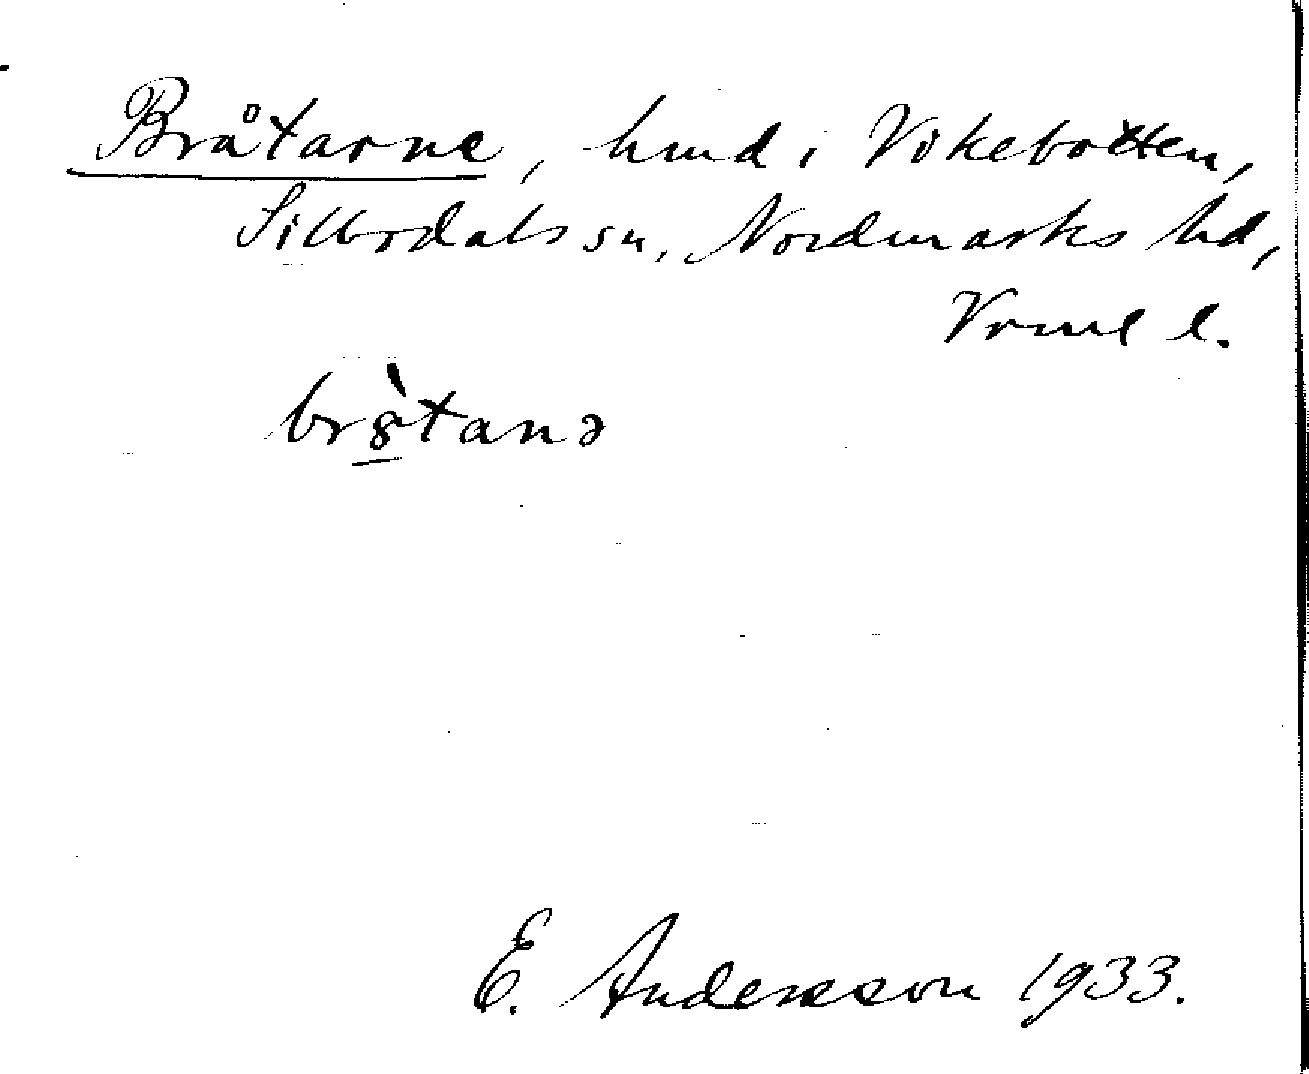 Bråtarne, hmd i Vikebotten,
Sillbodals sn, Nordmarks hd,
Vrml l.
br8̠̀tanə
E. Andersson 1933.